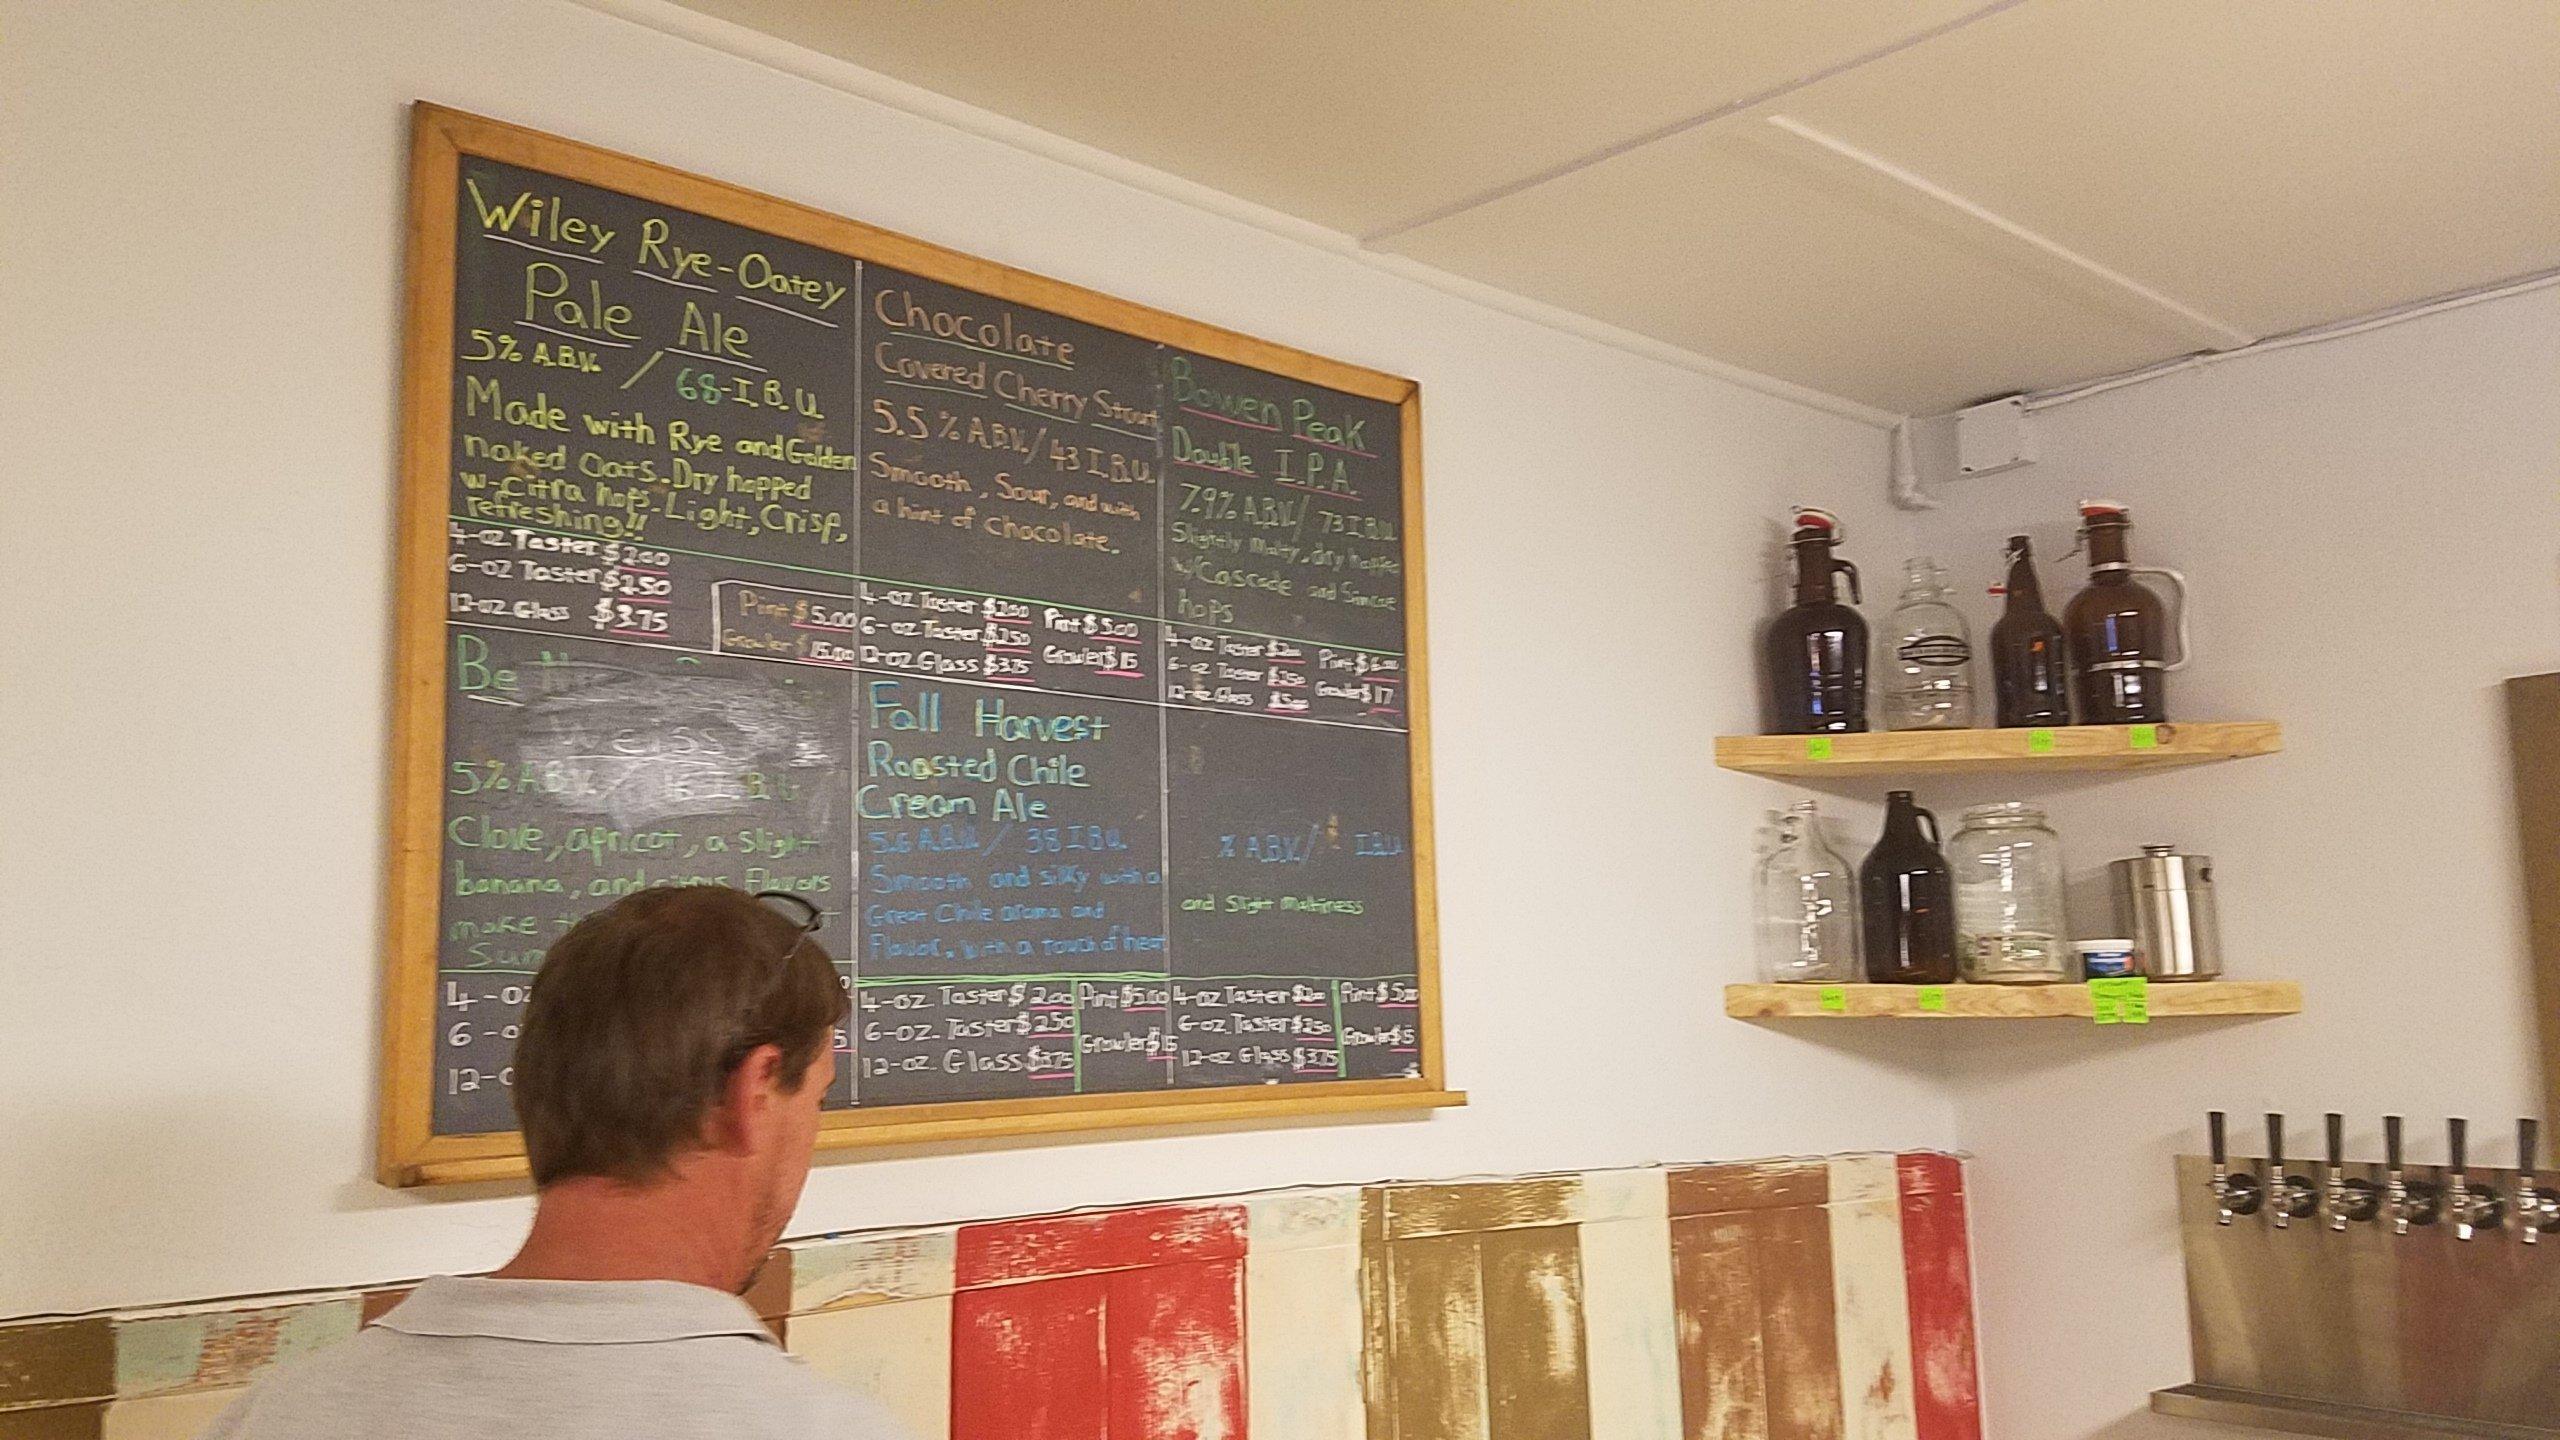 Wiley Rye-Oatey
Pale Ale
5% A.B.V. / 68-I.B.U.
Made with Rye and Golden
naked Oats. Dry hopped
w-Citra hops. Light, Crisp,
refreshing!!
4-oz Taster $2.00
6-oz Taster $2.50
12-oz Glass $3.75
Pint $5.00
Growler $15.00
Chocolate
Covered Cherry Stout
5.5% A.B.V./43 I.B.U.
Smooth, Sour, and with
a hint of chocolate.
4-oz Taster $2.00 Pint $5.00
6-oz Taster $2.50
12-oz Glass $3.75 Growler $15
Bowen Peak
Double I.P.A.
7.9% A.B.V./ 73 I.B.U.
Slightly Malty, dry hopped
w/Cascade and Simcoe
hops
4-oz Taster $2.00 Pint $6.00
6-oz Taster $2.50 Growler $17
12-oz Glass $5.00
Be
Weiss
5% A.B.V. / 16 I.B.U.
Clove, apricot, a slight
banana, and citrus Flavors
make
4-oz
6-o
12-o
5
Fall Harvest
Roasted Chile
Cream Ale
5.6 A.B.V. / 38 I.B.U.
Smooth and silky with a
Great Chile aroma and
Flavor. With a touch of heat
4-oz. Taster $2.00 Pint $5.00
6-oz. Taster $2.50
12-oz. Glass $3.75 Growler $15
% A.B.V./ I.B.U.
and Slight maltiness
4-oz Taster $2.00 Pint $5.00
6-oz. Taster $2.50
12-oz Glass $3.75 Growler $15